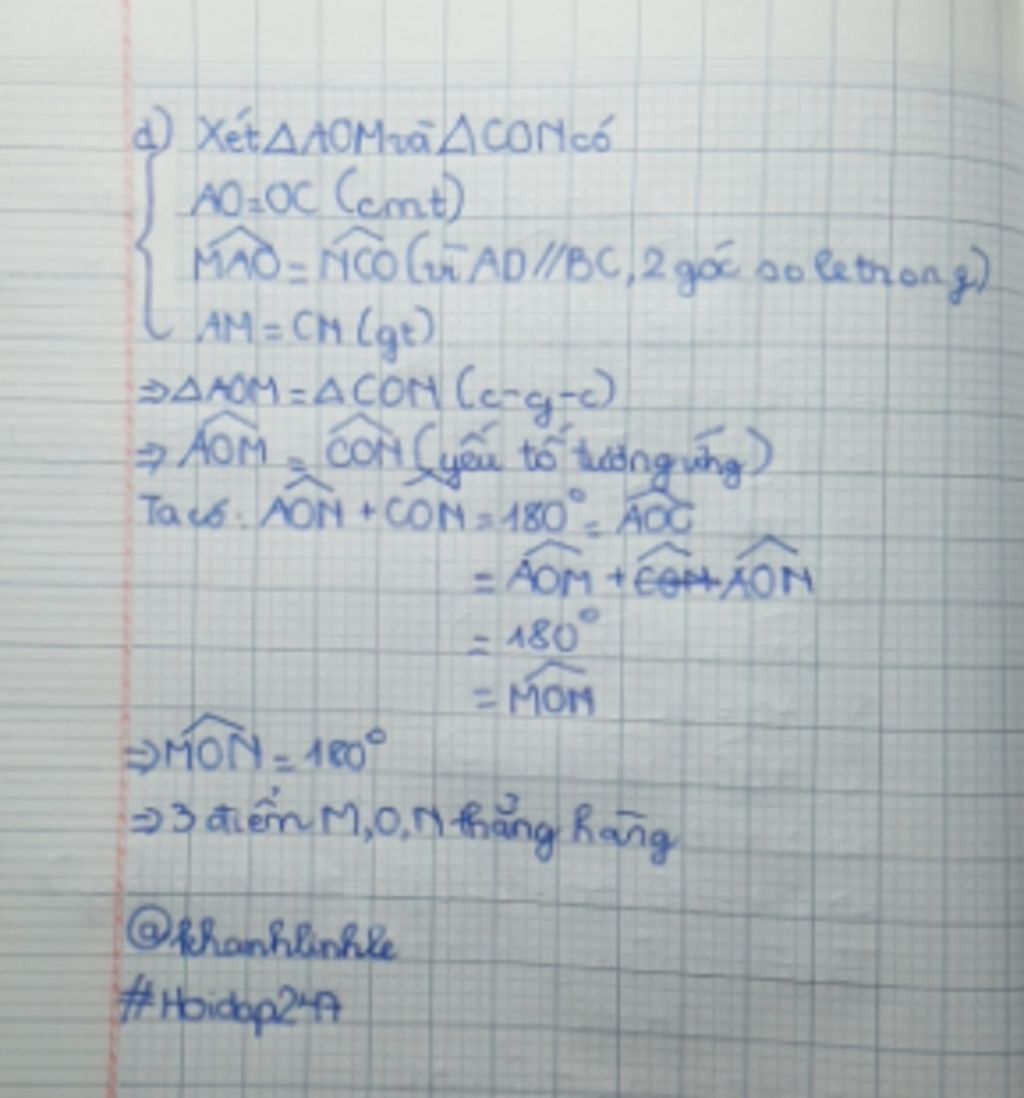 d) Xét △AOM và △CON có
AO=OC (cmt)
\widehat{MAO} = \widehat{NCO} (vì AD//BC, 2 góc so le trong)
AM = CN (gt)
⇒ △AOM = △CON (c-g-c)
⇒ \widehat{AOM} = \widehat{CON} (yếu tố tương ứng)
Ta có: \widehat{AON} + \widehat{CON} = 180° = \widehat{AOC}
= \widehat{AOM} + \widehat{AON}
= 180°
= \widehat{MON}
⇒ \widehat{MON} = 180°
⇒ 3 điểm M, O, N thẳng hàng
@khanhlinhle
#Hoidap247